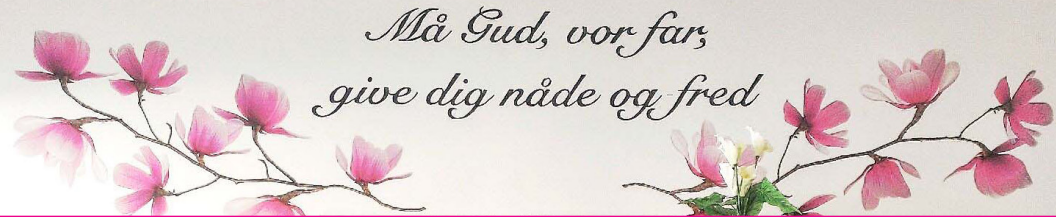 Må Gud, vor far,
give dig nåde og fred